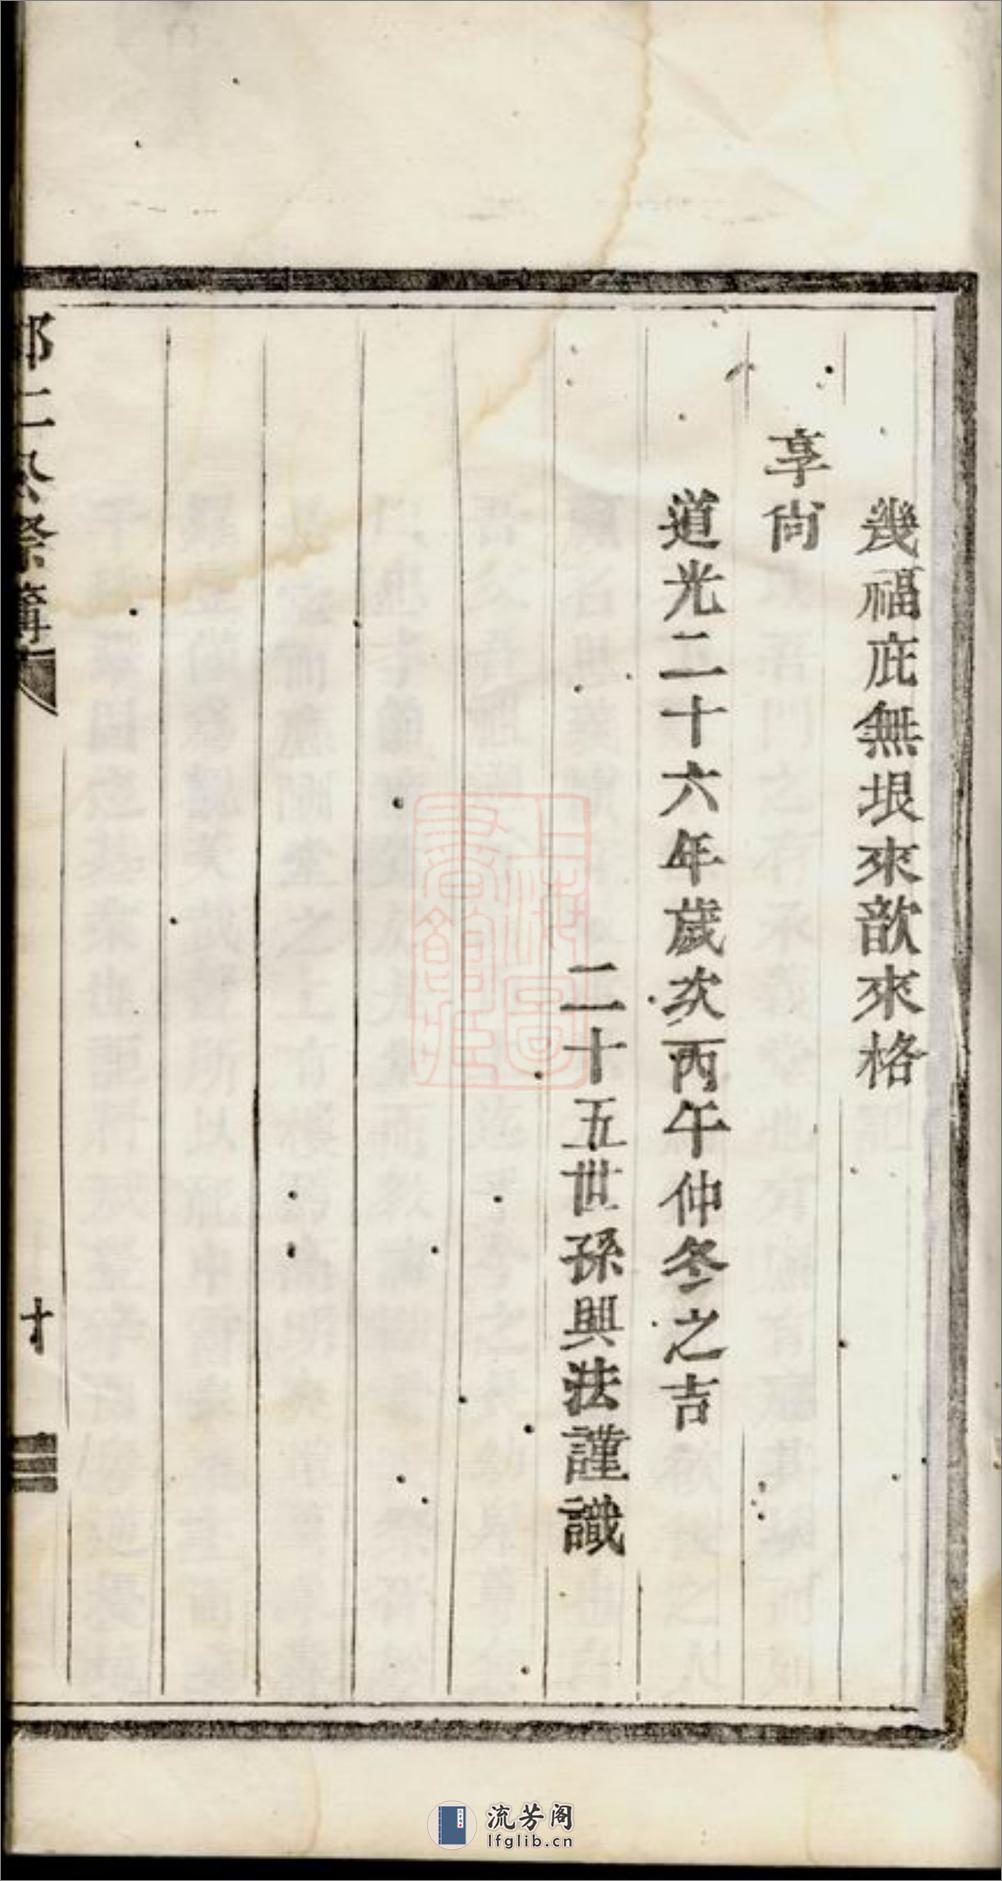 幾福庇無垠來歆來格
享尙
道光二十六年歲次丙午仲冬之吉
二十五世孫興法謹識
仁公祭簿
十
上海圖書館藏
流芳阁
lfglib.cn